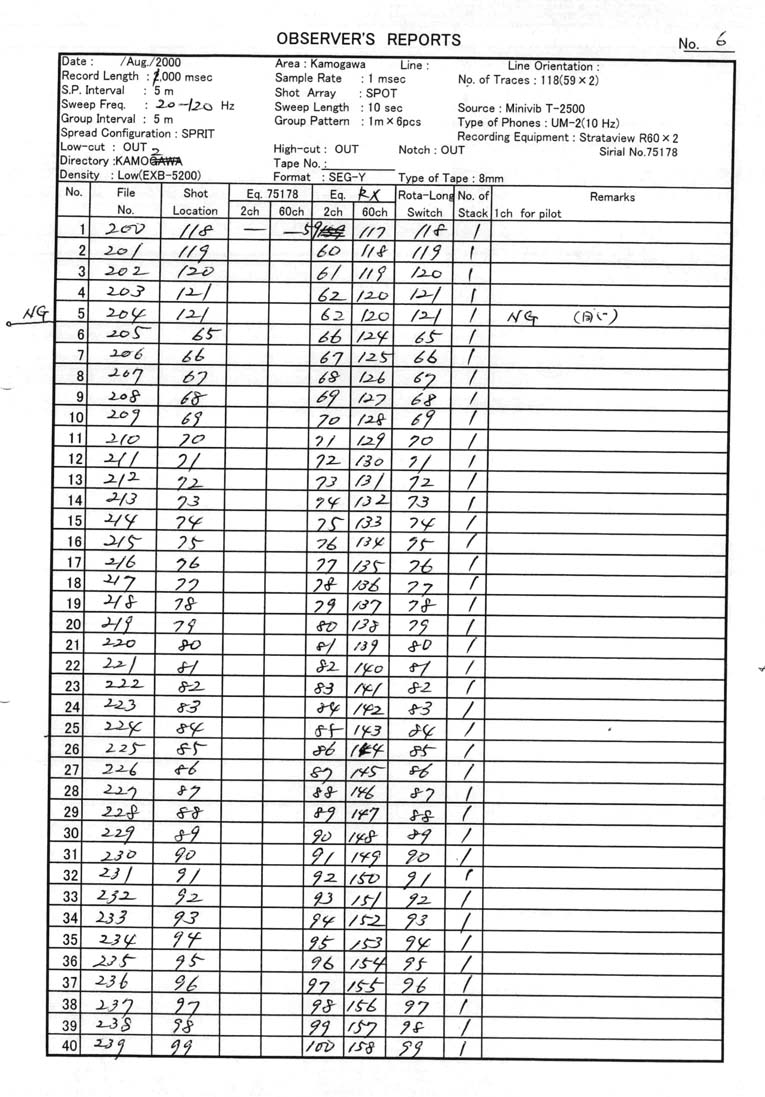 OBSERVER'S REPORTS
No. 6
Date : /Aug./2000 Area : Kamogawa Line : Line Orientation :
Record Length : 1,000 msec Sample Rate : 1 msec No. of Traces : 118(59×2)
S.P. Interval : 5 m Shot Array : SPOT
Sweep Freq. : 20-120 Hz Sweep Length : 10 sec Source : Minivib T-2500
Group Interval : 5 m Group Pattern : 1m×6pcs Type of Phones : UM-2(10 Hz)
Spread Configuration : SPRIT Recording Equipment : Strataview R60×2
Low-cut : OUT High-cut : OUT Notch : OUT Sirial No.75178
Directory :KAMO2 Tape No. :
Density : Low(EXB-5200) Format : SEG-Y Type of Tape : 8mm
No. File Shot Eq. 75178 Eq. RX Rota-Long No. of Remarks
No. Location 2ch 60ch 2ch 60ch Switch Stack 1ch for pilot
1 200 118 — — 59 117 118 1
2 201 119 60 118 119 1
3 202 120 61 119 120 1
4 203 121 62 120 121 1
NG 5 204 121 62 120 121 1 NG
6 205 65 66 124 65 1
7 206 66 67 125 66 1
8 207 67 68 126 67 1
9 208 68 69 127 68 1
10 209 69 70 128 69 1
11 210 70 71 129 70 1
12 211 71 72 130 71 1
13 212 72 73 131 72 1
14 213 73 74 132 73 1
15 214 74 75 133 74 1
16 215 75 76 134 75 1
17 216 76 77 135 76 1
18 217 77 78 136 77 1
19 218 78 79 137 78 1
20 219 79 80 138 79 1
21 220 80 81 139 80 1
22 221 81 82 140 81 1
23 222 82 83 141 82 1
24 223 83 84 142 83 1
25 224 84 85 143 84 1
26 225 85 86 144 85 1
27 226 86 87 145 86 1
28 227 87 88 146 87 1
29 228 88 89 147 88 1
30 229 89 90 148 89 1
31 230 90 91 149 90 1
32 231 91 92 150 91 1
33 232 92 93 151 92 1
34 233 93 94 152 93 1
35 234 94 95 153 94 1
36 235 95 96 154 95 1
37 236 96 97 155 96 1
38 237 97 98 156 97 1
39 238 98 99 157 98 1
40 239 99 100 158 99 1